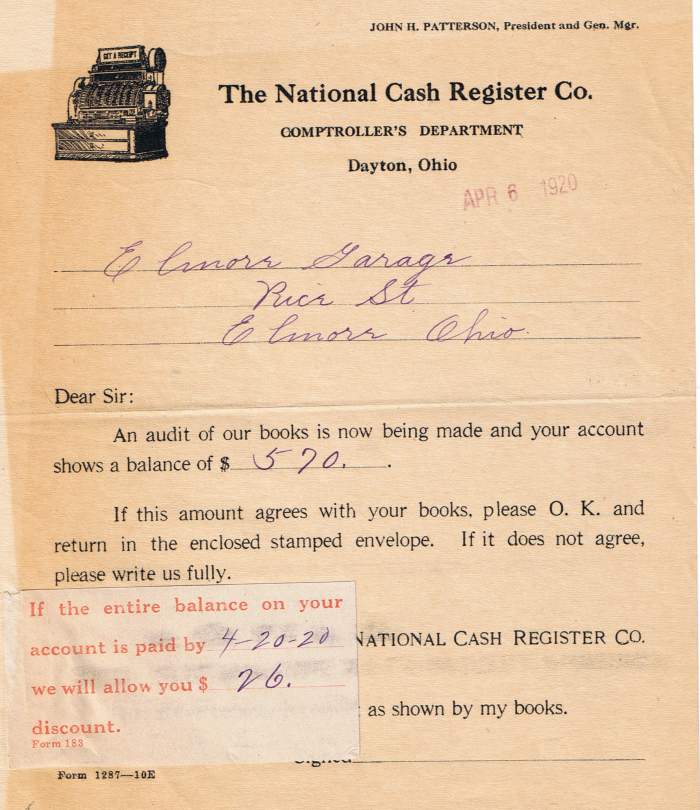 JOHN H. PATTERSON, President and Gen. Mgr.
GET A RECEIPT
The National Cash Register Co.
COMPTROLLER'S DEPARTMENT
Dayton, Ohio
APR 6 1920
Elmore Garage
Rice St
Elmore Ohio.
Dear Sir:
An audit of our books is now being made and your account
shows a balance of $ 570. .
If this amount agrees with your books, please O. K. and
return in the enclosed stamped envelope. If it does not agree,
please write us fully.
If the entire balance on your
account is paid by 4-20-20
we will allow you $ 26.
discount.
Form 183
NATIONAL CASH REGISTER CO.
as shown by my books.
Signed
Form 1287—10E